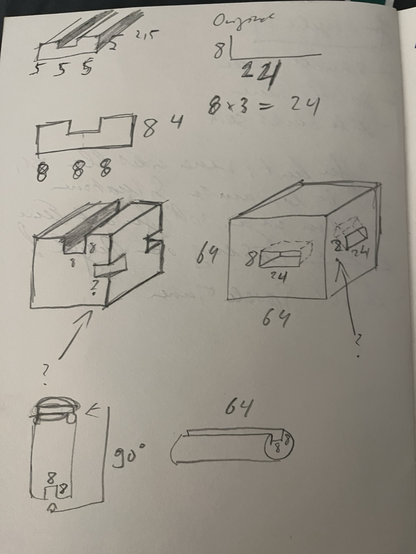 Original
2,5
5 5 5 5
8
24
8 x 3 = 24
8 4
8 8 8
8 8
?
64
8
24
8
24
64
?
?
64
8
8
90°
8
8